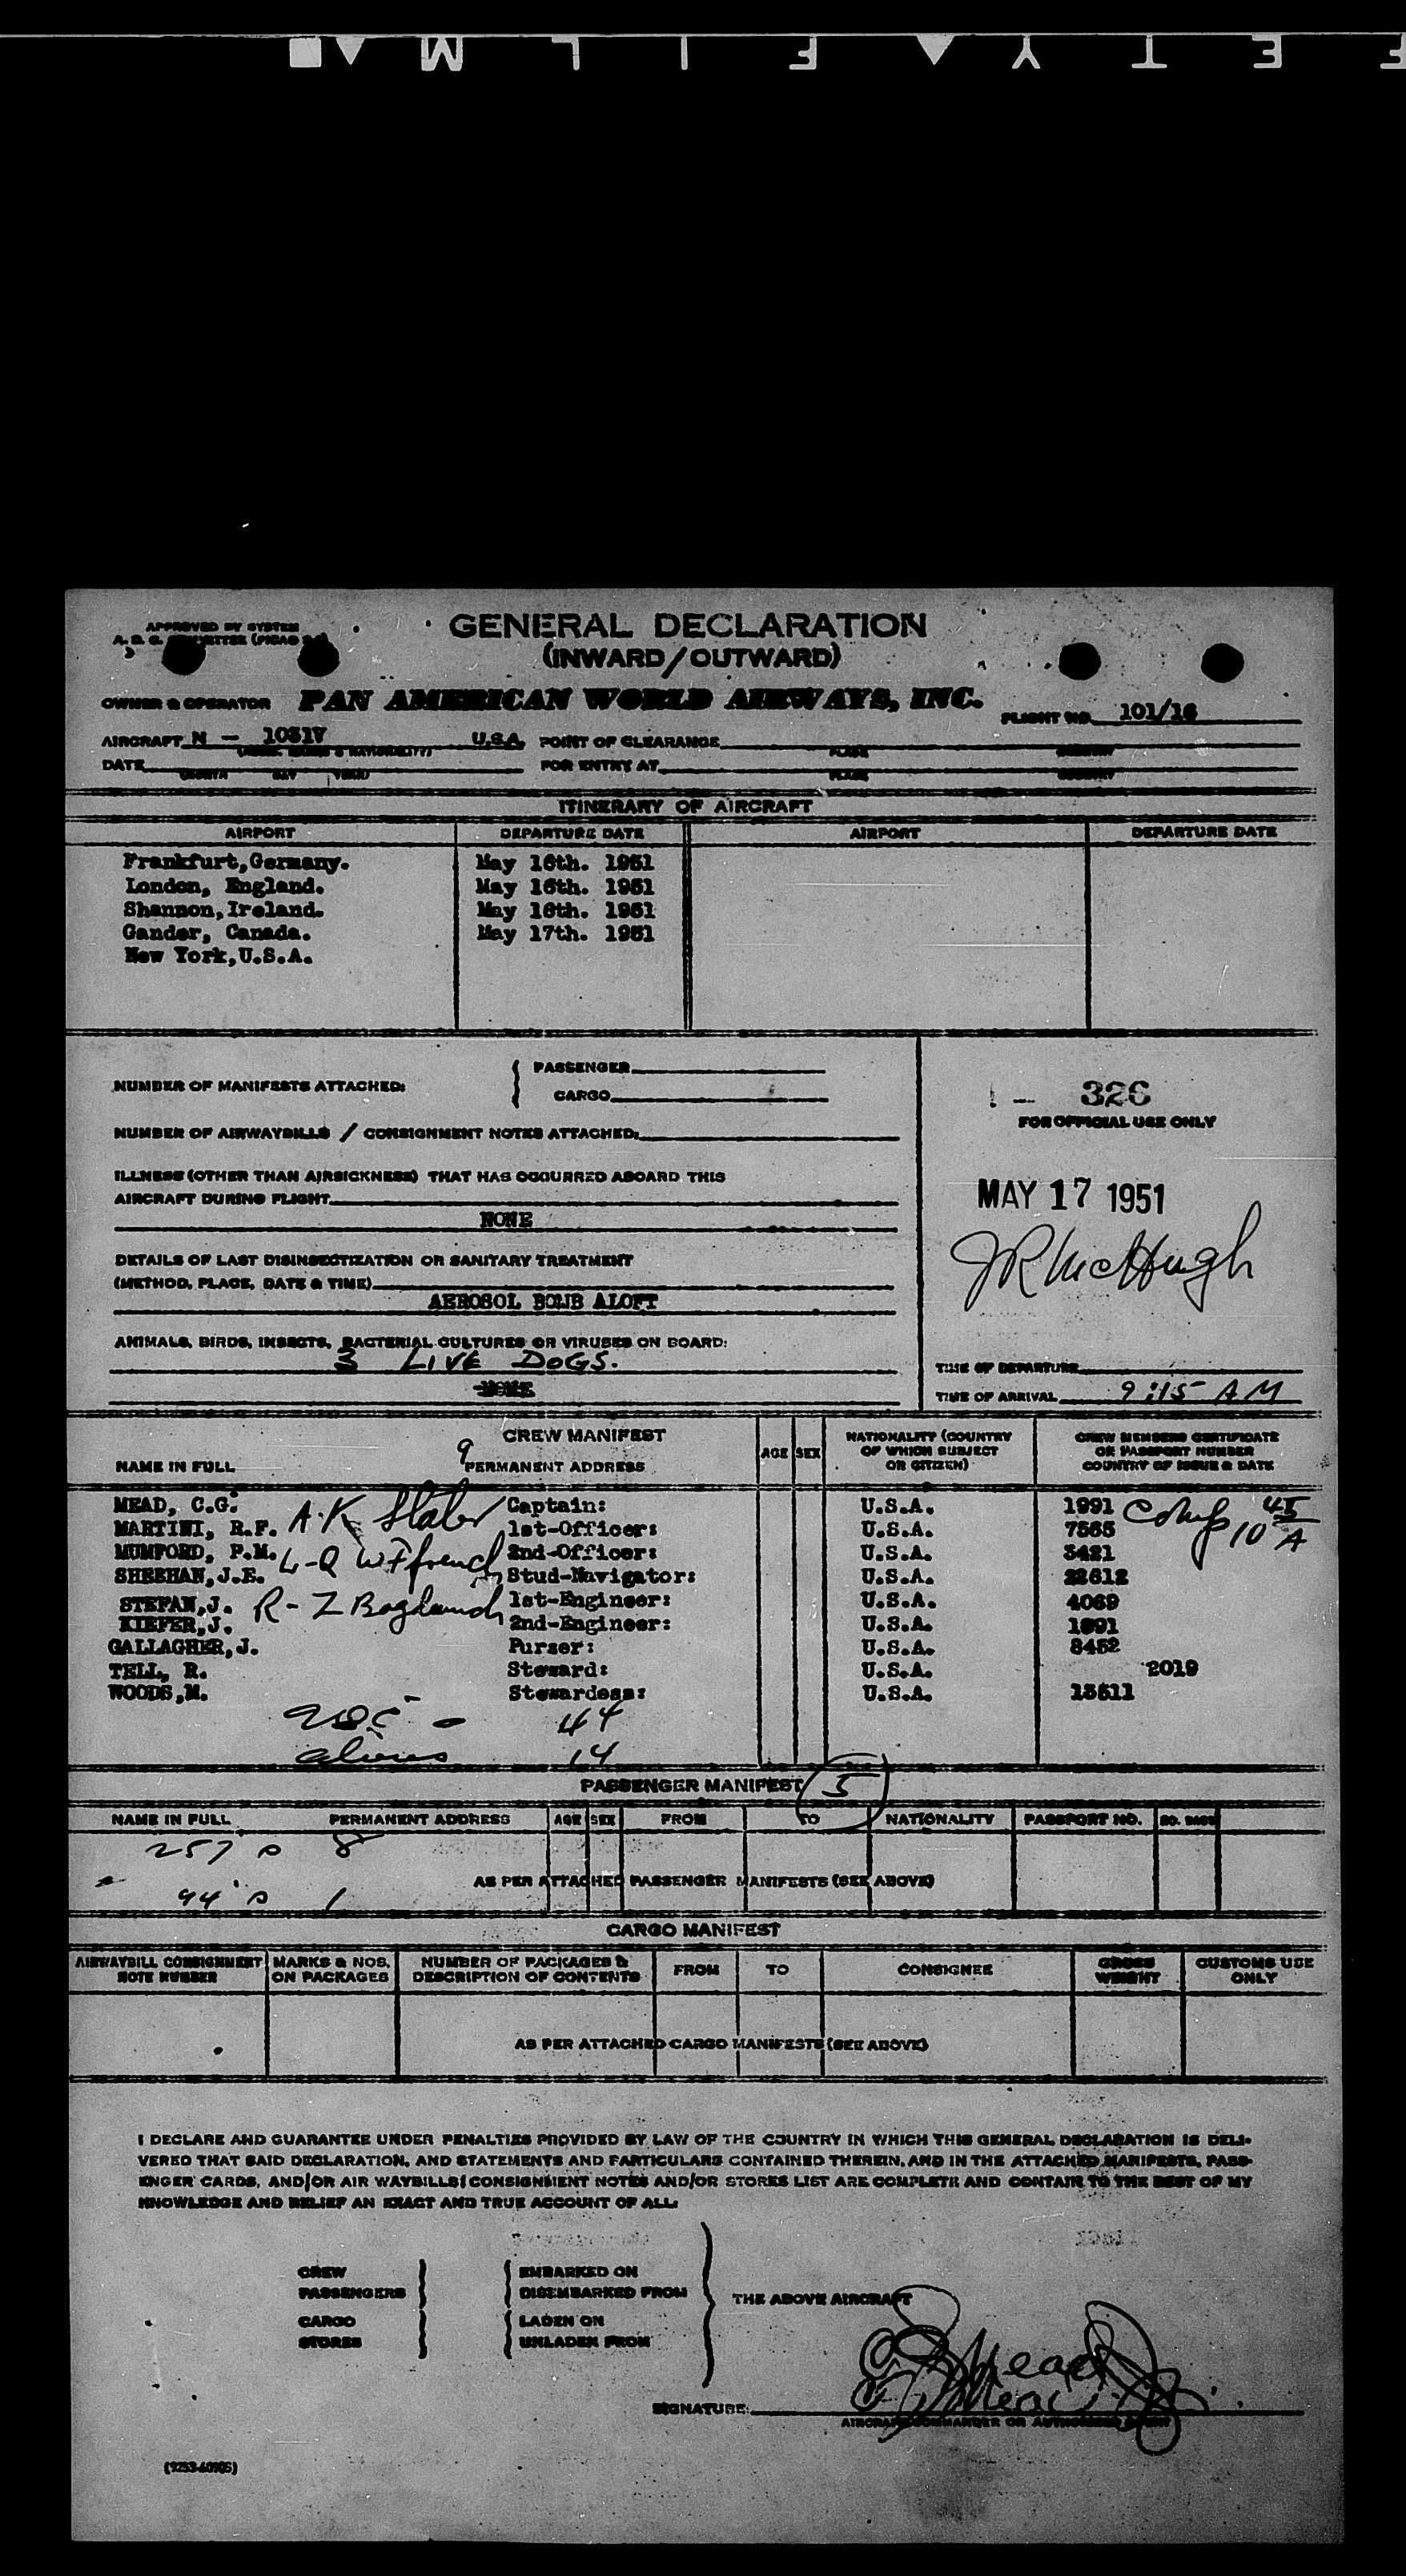 GENERAL DECLARATION
(INWARD/OUTWARD)
APPROVED BY SYSTEM
OWNER & OPERATOR PAN AMERICAN WORLD AIRWAYS, INC. FLIGHT NO. 101/16
AIRCRAFT N - 1031V U.S.A. POINT OF CLEARANCE
PLACE COUNTRY
DATE FOR ENTRY AT
MONTH DAY YEAR PLACE COUNTRY
ITINERARY OF AIRCRAFT
AIRPORT DEPARTURE DATE AIRPORT DEPARTURE DATE
Frankfurt,Germany. May 16th. 1951
London, England. May 16th. 1951
Shannon,Ireland. May 16th. 1951
Gander, Canada. May 17th. 1951
New York,U.S.A.
NUMBER OF MANIFESTS ATTACHED:
PASSENGER
CARGO
NUMBER OF AIRWAYBILLS / CONSIGNMENT NOTES ATTACHED:
ILLNESS (OTHER THAN AIRSICKNESS) THAT HAS OCCURRED ABOARD THIS
AIRCRAFT DURING FLIGHT
NONE
DETAILS OF LAST DISINSECTIZATION OR SANITARY TREATMENT
(METHOD, PLACE, DATE & TIME)
AEROSOL BOMB ALOFT
ANIMALS, BIRDS, INSECTS, BACTERIAL CULTURES OR VIRUSES ON BOARD:
3 LIVE DOGS.
NONE
326
FOR OFFICIAL USE ONLY
MAY 17 1951
J R McHugh
TIME OF DEPARTURE
TIME OF ARRIVAL 9:15 AM
CREW MANIFEST
9
NAME IN FULL PERMANENT ADDRESS AGE SEX NATIONALITY (COUNTRY OF WHICH SUBJECT OR CITIZEN) CREW MEMBERS CERTIFICATE OR PASSPORT NUMBER COUNTRY OF ISSUE & DATE
MEAD, C.G. Captain: U.S.A. 1991
MARTINI, R.F. 1st-Officer: U.S.A. 7565
MUMFORD, P.M. 2nd-Officer: U.S.A. 3421
SHEEHAN,J.E. Stud-Navigator: U.S.A. 22612
STEFAN,J. 1st-Engineer: U.S.A. 4069
KIEFER,J. 2nd-Engineer: U.S.A. 1891
GALLAGHER,J. Purser: U.S.A. 8452
TELL, R. Steward: U.S.A. 2019
WOODS,M. Stewardess: U.S.A. 13511
USC - 44
aliens 14
PASSENGER MANIFEST 5
NAME IN FULL PERMANENT ADDRESS AGE SEX FROM TO NATIONALITY PASSPORT NO. NO. BAGS
257 8
AS PER ATTACHED PASSENGER MANIFESTS (SEE ABOVE)
44 1
CARGO MANIFEST
AIRWAYBILL CONSIGNMENT NOTE NUMBER MARKS & NOS. ON PACKAGES NUMBER OF PACKAGES & DESCRIPTION OF CONTENTS FROM TO CONSIGNEE GROSS WEIGHT CUSTOMS USE ONLY
AS PER ATTACHED CARGO MANIFESTS (SEE ABOVE)
I DECLARE AND GUARANTEE UNDER PENALTIES PROVIDED BY LAW OF THE COUNTRY IN WHICH THIS GENERAL DECLARATION IS DELI-
VERED THAT SAID DECLARATION, AND STATEMENTS AND PARTICULARS CONTAINED THEREIN, AND IN THE ATTACHED MANIFESTS, PASS-
ENGER CARDS, AND/OR AIR WAYBILLS/CONSIGNMENT NOTES AND/OR STORES LIST ARE COMPLETE AND CONTAIN TO THE BEST OF MY
KNOWLEDGE AND BELIEF AN EXACT AND TRUE ACCOUNT OF ALL:
CREW EMBARKED ON
PASSENGERS DISEMBARKED FROM
THE ABOVE AIRCRAFT
CARGO LADEN ON
STORES UNLADEN FROM
SIGNATURE:
AIRCRAFT COMMANDER OR AUTHORIZED AGENT